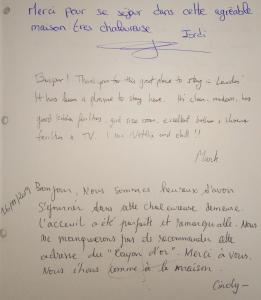 Merci pour se séjour dans cette agréable
maison tres chaleureuse
Jordi
Bonjour! Thank you for this great place to stay
It has been a pleasure to stay here. clean, modern, has
good kitchen facilities, good size room, excellent bathroom & shower
facilities & TV. I love Netflix and chill!!
Mark
Bonjour, Nous sommes heureux d'avoir
séjourner dans cette chaleureuse demeure.
L'acceuil a été parfait et remarquable. Nous
ne manquerons pas de recommander cette
adresse du "Rayon d'or". Merci à vous.
Nous étions comme à la maison.
Cindy